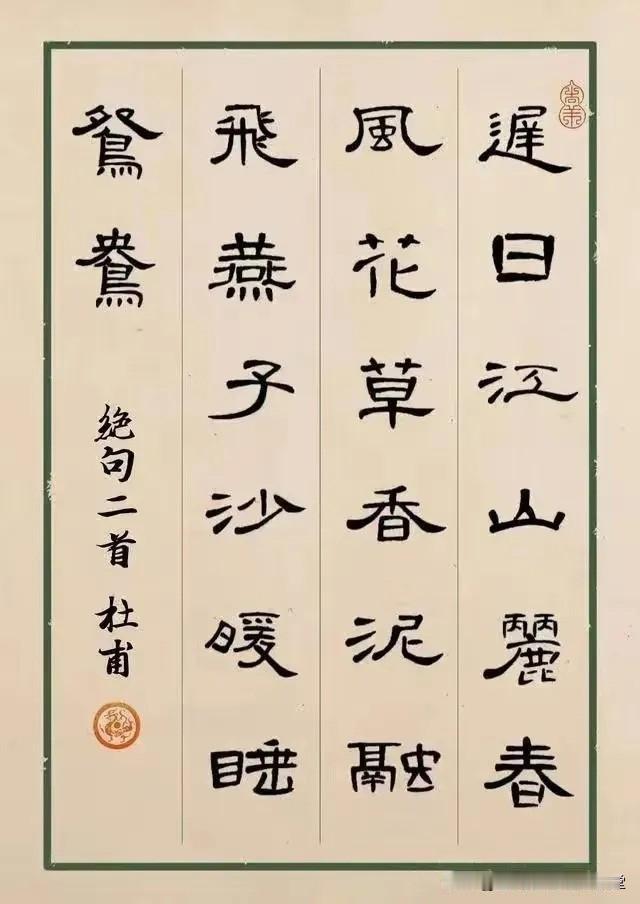 遲日江山麗春
風花草香泥融
飛燕子沙暖睡
鴛鴦
絶句二首 杜甫